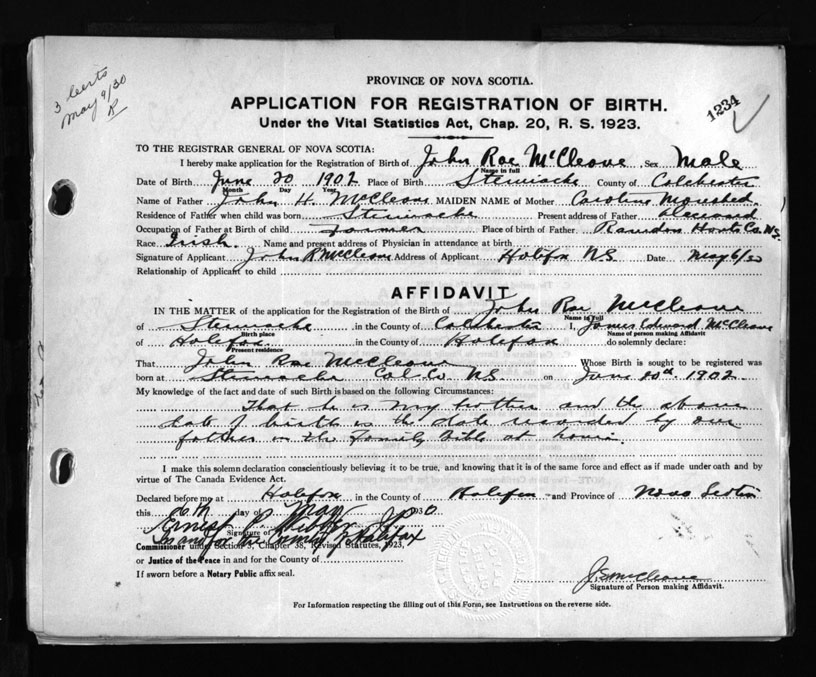 3 Certs
May 9/30
R
1234
PROVINCE OF NOVA SCOTIA.
APPLICATION FOR REGISTRATION OF BIRTH.
Under the Vital Statistics Act, Chap. 20, R. S. 1923.
TO THE REGISTRAR GENERAL OF NOVA SCOTIA:
I hereby make application for the Registration of Birth of John Rae McCleave Sex Male
Name in full
Date of Birth June 20 1902 Place of Birth Stewiacke County of Colchester
Month Day Year
Name of Father John H. McCleave MAIDEN NAME of Mother Caroline
Residence of Father when child was born Stewiacke Present address of Father Deceased
Occupation of Father at Birth of child Farmer Place of birth of Father Rawdon Hants Co. N.S.
Race Irish. Name and present address of Physician in attendance at birth
Signature of Applicant John R McCleave Address of Applicant Halifax N.S. Date May 6/30
Relationship of Applicant to child
AFFIDAVIT
IN THE MATTER of the application for the Registration of the Birth of John Rae McCleave
Name in Full
of Stewiacke in the County of Colchester I, James Edward McCleave
Birth place Name of person making Affidavit
of Halifax in the County of Halifax do solemnly declare:
Present residence
That John Rae McCleave Whose Birth is sought to be registered was
born at Stewiacke Col. Co. N.S. on June 20th 1902
My knowledge of the fact and date of such Birth is based on the following Circumstances:
That he is my brother and the above
date of birth is the date recorded by our
father in the Family Bible at home.
I make this solemn declaration conscientiously believing it to be true, and knowing that it is of the same force and effect as if made under oath and by
virtue of The Canada Evidence Act.
Declared before me at Halifax in the County of Halifax and Province of Nova Scotia
this 6th day of May 1930
Ernest J.P.
Signature of
In and for the County of Halifax
Commissioner under Section 3, Chapter 38, Revised Statutes, 1923,
or Justice of the Peace in and for the County of
If sworn before a Notary Public affix seal.
J E McCleave
Signature of Person making Affidavit.
For Information respecting the filling out of this Form, see Instructions on the reverse side.